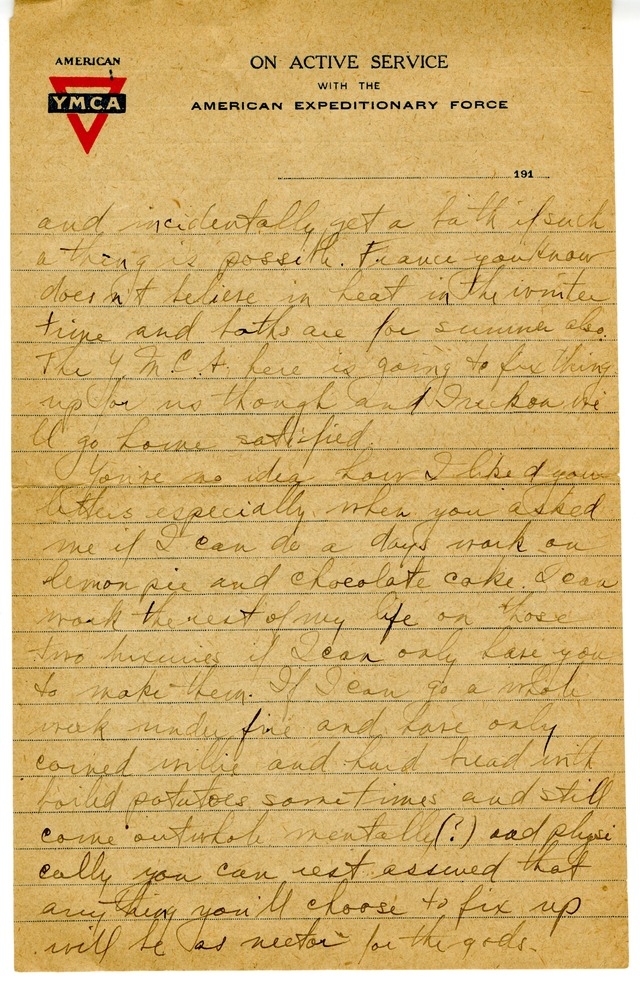 AMERICAN
Y.M.C.A
ON ACTIVE SERVICE
WITH THE
AMERICAN EXPEDITIONARY FORCE
191
and incidentally get a bath if such
a thing is possible. France you know
doesn't believe in heat in the winter
time and baths are for summer also.
The Y.M.C.A. here is going to fix things
up for us though and I reckon we
'll go home satisfied.
You've no idea how I liked your
letters especially when you asked
me if I can do a days work on
lemon pie and chocolate cake. I can
work the rest of my life on those
two luxuries if I can only have you
to make them. If I can go a whole
week under fire and have only
corned willie and hard bread with
boiled potatoes sometimes and still
come out whole mentally (?) and physi
cally you can rest assured that
anything you'll choose to fix up
will be as nectar for the gods.